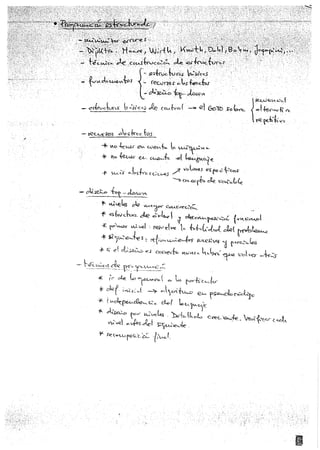 • Programación estructurada
- minimizar errores
- Dijkstra, Hoare, Wirth, Knuth, Dahl, Bohm, Jacopini, ...
- técnica de construcción de estructuras
- fundamentos
- estructuras básicas
- recursos abstractos
- diseño top-down
- estructuras básicas de control → el GOTO sobra
secuencial
alternativa
repetitiva
- recursos abstractos
* no tener en cuenta la máquina
* no tener en cuenta el lenguaje
* más abstracciones
valores específicos
concepto de variable
- diseño top-down
* niveles de mayor concreción
* estructura de árbol y descomposición funcional
* primer nivel: resolver la totalidad del problema
* siguientes: refinamientos sucesivos y parciales
* si el diseño es correcto nunca habrá que volver atrás
- técnica de programación
* ir de lo general a lo particular
* def. inicial → algoritmo en pseudocódigo
* independencia del lenguaje
* diseño por niveles. Detallado creciente. Verificar cada
nivel antes del siguiente
* recomposición final.